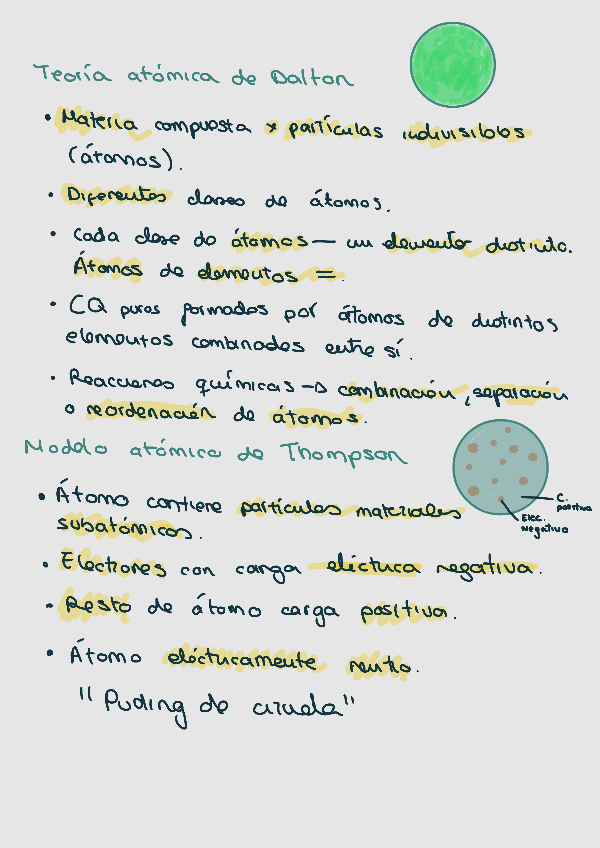 Teoría atómica de Dalton
• Materia compuesta x partículas indivisibles
(átomos).
• Diferentes clases de átomos.
• Cada clase de átomos — un elemento distinto.
Átomos de elementos =.
• CQ puros formados por átomos de distintos
elementos combinados entre sí.
• Reacciones químicas → combinación, separación
o reordenación de átomos.
Modelo atómico de Thompson
• Átomo contiene partículas materiales
subatómicas.
C. positiva
Elec. negativa
• Electrones con carga eléctrica negativa.
• Resto de átomo carga positiva.
• Átomo eléctricamente neutro.
"Puding de ciruela"